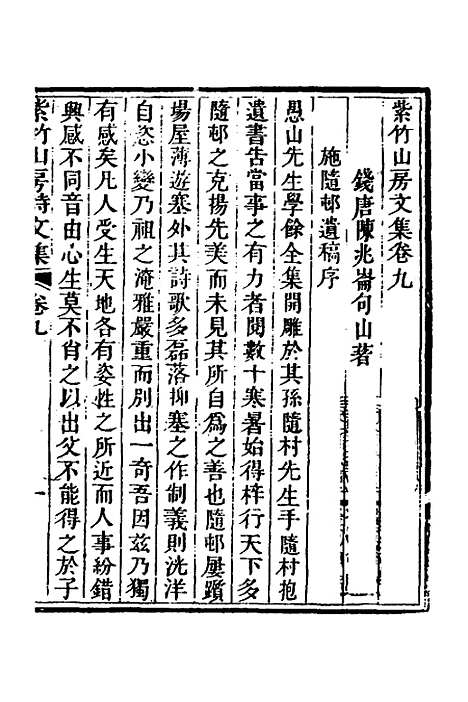 紫竹山房文集卷九
錢唐陳兆崙句山著
施隨邨遺稿序
愚山先生學餘全集開雕於其孫隨村先生手隨村抱
遺書告當事之有力者閱數十寒暑始得梓行天下多
隨邨之克揚先美而未見其所自為之善也隨邨屢躓
場屋薄遊塞外其詩歌多磊落抑塞之作制義則洸洋
自恣小變乃祖之淹雅嚴重而別出一奇吾因茲乃獨
有感矣凡人受生天地各有姿性之所近而人事紛錯
興感不同音由心生莫不肖之以出父不能得之於子
紫竹山房詩文集
卷九
一